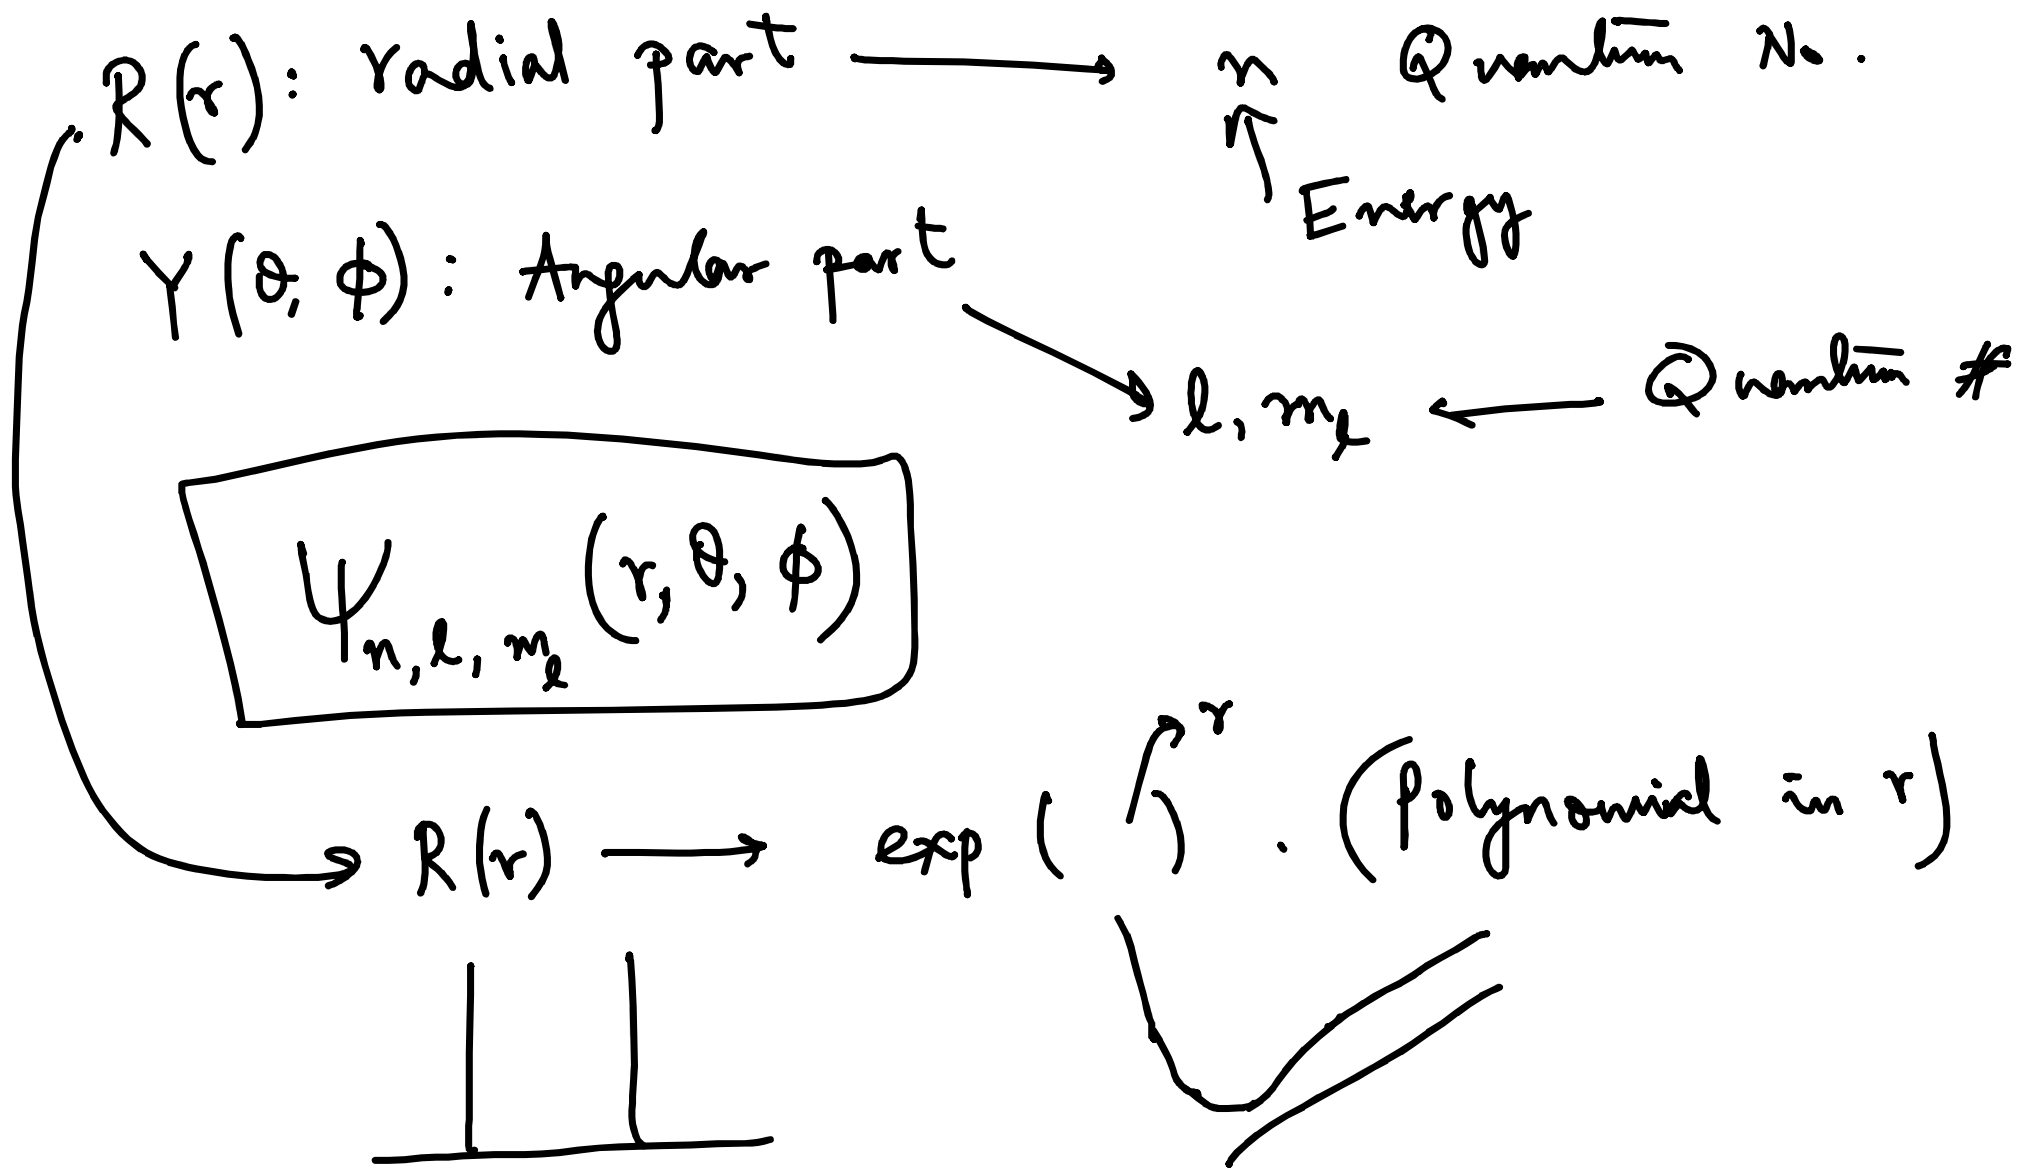 R(r): radial part → n Quantum No.
↑ Energy
Y(θ, φ): Angular part
→ l, m_l ← Quantum #
ψ_{n, l, m_l} (r, θ, φ)
r
R(r) → exp( ) . (Polynomial in r)